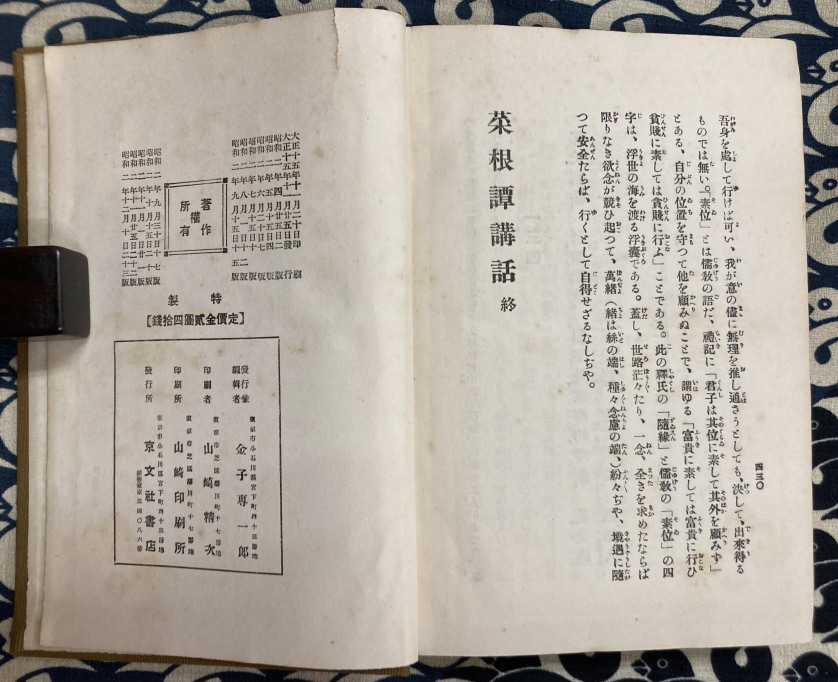 四三〇
吾身を處して行けば可い、我が意の儘に無理を推し通さうとしても、決して、出來得る
ものでは無い。「素位」とは儒敎の語だ、禮記に「君子は其位に素して其外を顧みず」
とある、自分の位置を守つて他を顧みぬことで、謂ゆる「富貴に素しては富貴に行ひ
貧賤に素しては貧賤に行ふ」ことである。此の釋氏の「隨緣」と儒敎の「素位」の四
字は、浮世の海を渡る浮囊である。蓋し、世路茫々たり、一念、全きを求めたならば
限りなき欲念が競ひ起つて、萬緖(緖は絲の端、種々念慮の端、)紛々ぢや、境遇に隨
つて安全たらば、行くとして自得せざるなしぢや。
菜根譚講話 終
大正十五年十一月二十日印刷
大正十五年十一月廿五日發行
昭和二年
昭和二年
昭和二年
昭和二年
昭和二年
昭和二年九月十五日十五版
著作
權
所有
昭和二年九月三十日
昭和二年
昭和二年
昭和二年十二月十日二十三版
特製
【定價金貳圓四拾錢】
東京市小石川區宮下町四十三番地
發行兼
編輯者
金子專一郎
東京市芝區 川町十七番地
印刷者
山崎精次
東京市芝區 川町十七番地
印刷所
山崎印刷所
東京市小石川區宮下町四十三番地
發行所
京文社書店
振替東京 四〇八六番